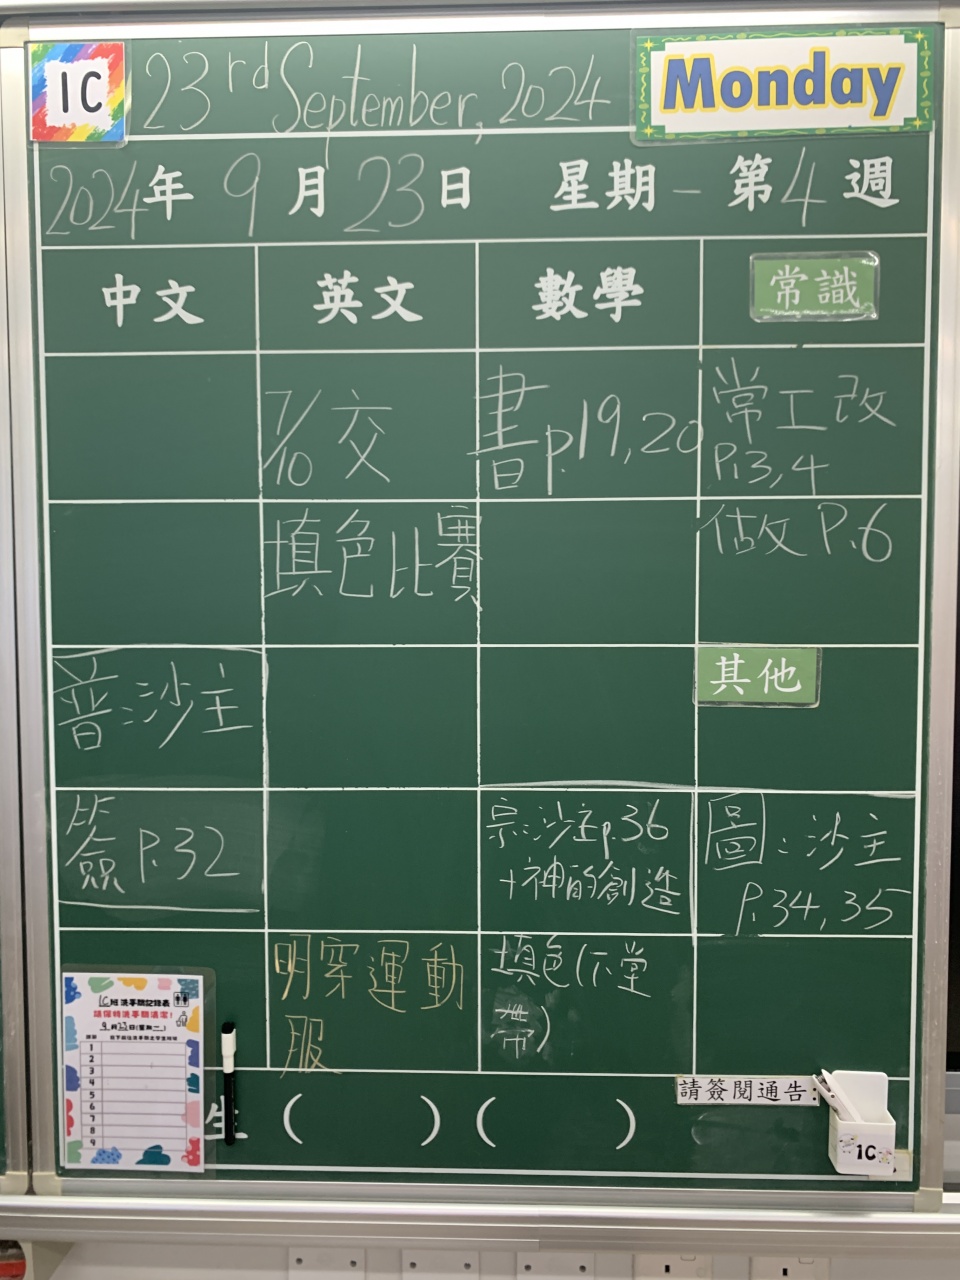 1C 23rd September, 2024 Monday
2024年 9 月 23 日 星期一 第 4 週
中文 英文 數學 常識
7/10 交
填色比賽
書 p.19,20
常工改
P.3,4
估改 P.6
其他
普:沙主
簽 P.32
宗:沙主p.36
+神的創造
圖:沙主
P.34,35
明穿運動
服
填色(下堂
帶)
1C班洗手間記錄表
請保持洗手間清潔!
9月23日(星期一)
1
2
3
4
5
6
7
8
9
生 ( ) ( )
請簽閱通告:
1C